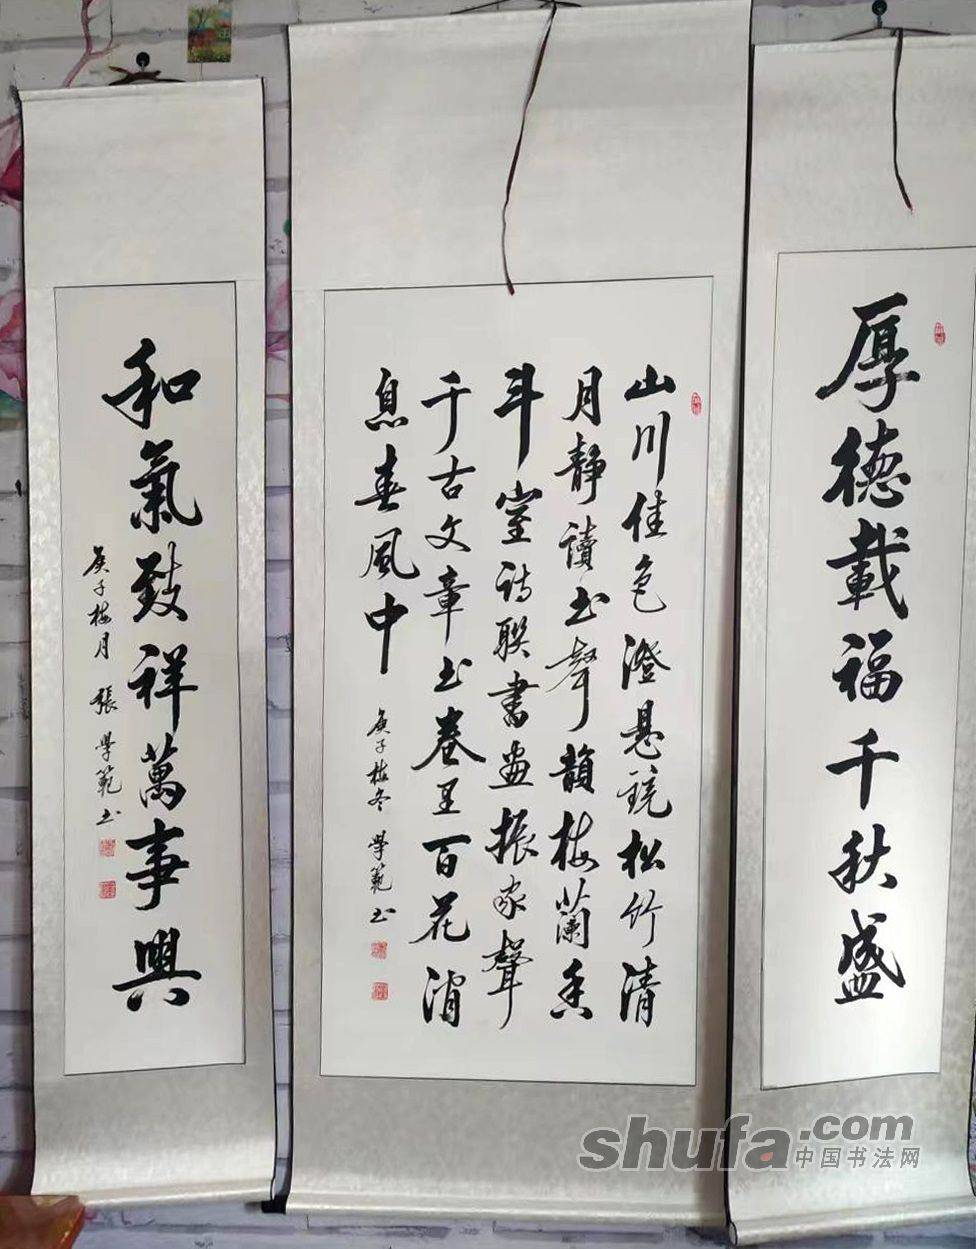 厚德載福千秋盛
山川佳色澄悬松竹清
月静讀书聲韻梅蘭香
斗室詩联書畫振家聲
千古文章书卷里百花消
息春風中
庚子冬 學範书
和氣致祥萬事興
庚子梅月 張學範书
shufa.com
中国书法网